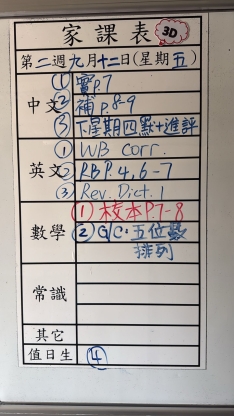 家課表 3D
第二週九月十二日(星期五)
中文
① 實P.7
② 補P.8-9
③ 下星期四默+進評
英文
① WB Corr.
② RB P.4, 6-7
③ Rev. Dict. 1
數學
① 校本P.7-8
② G/C: 五位數
排列
常識
其它
值日生 ④